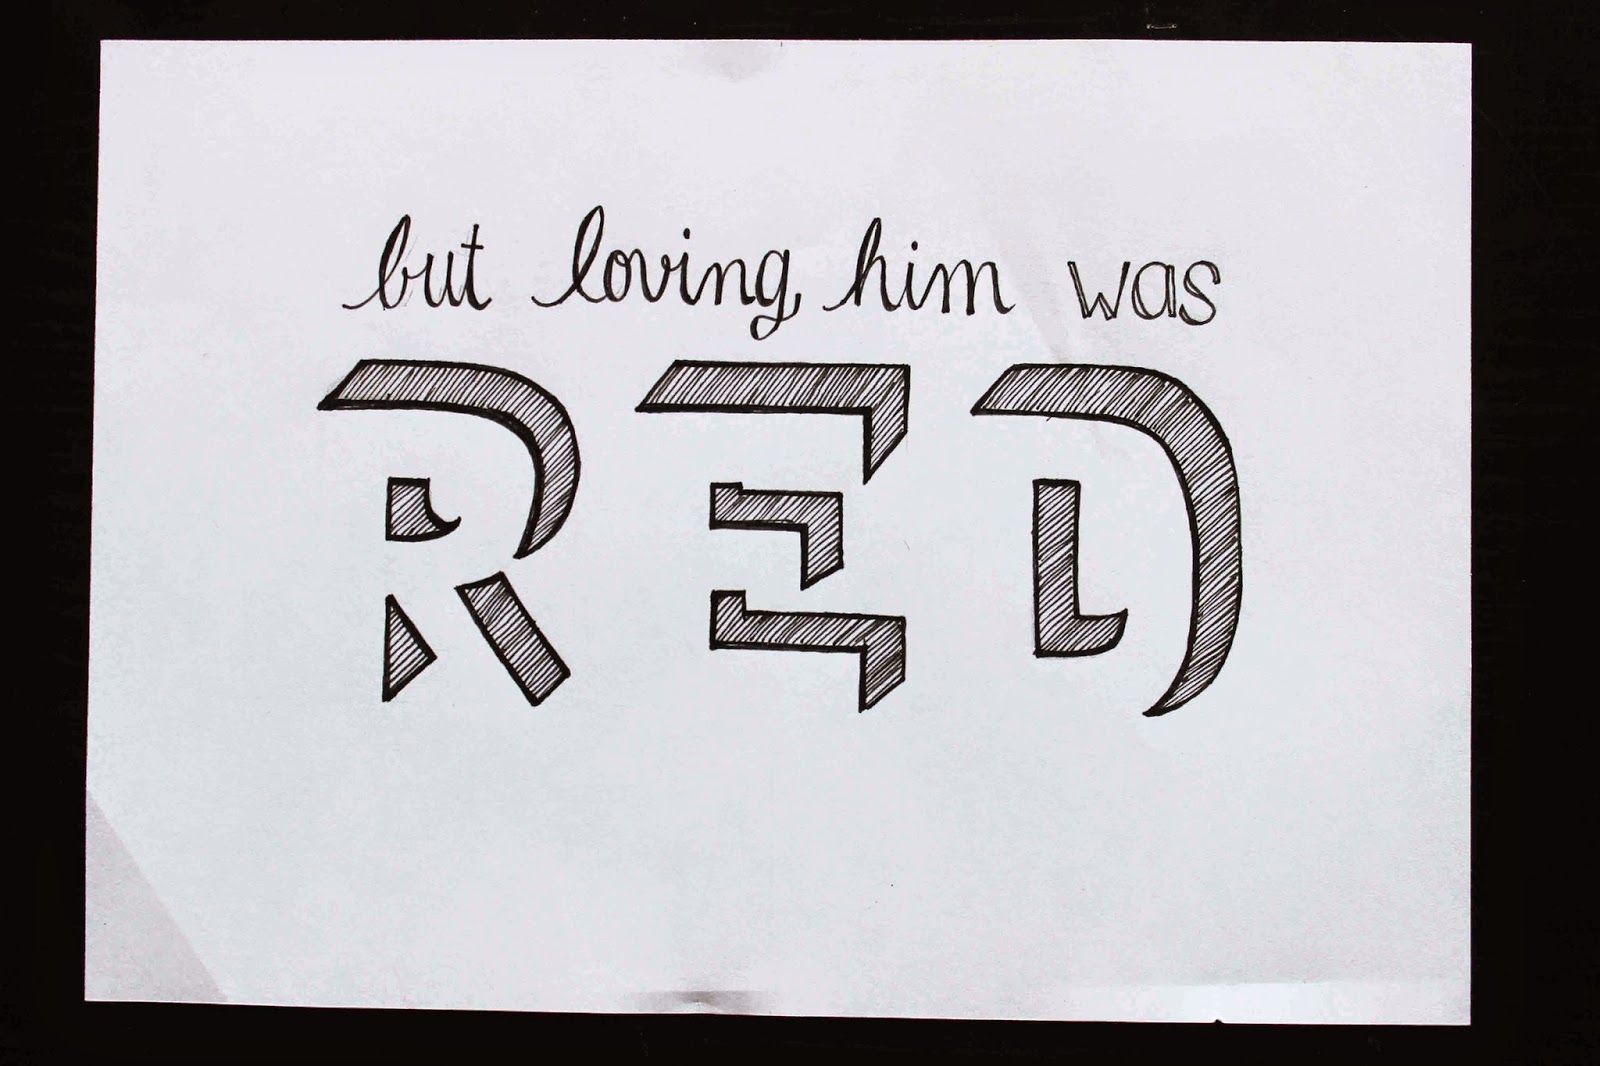 but loving him was
RED